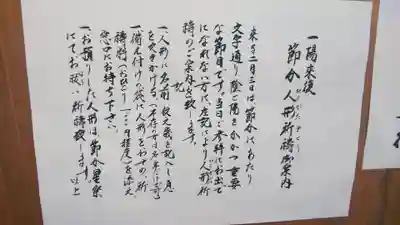 一陽来復
節分人形祈祷御案内
来る二月三日は、節分にあたり
文字通り、陰と陽をわかつ重要
な節目です。当日ご参拝にお出で
になれない方に、左記により人形祈
祷のご案内を致します。
記
一、人形に名前、数え歳を記し息
を吹きかける。
一、備え付けの袋に人形をおさめ、祈
祷料
窓口にお持ち下さい。
一、お預りした人形は、節分星祭
にてお祓い、祈祷致します。以上